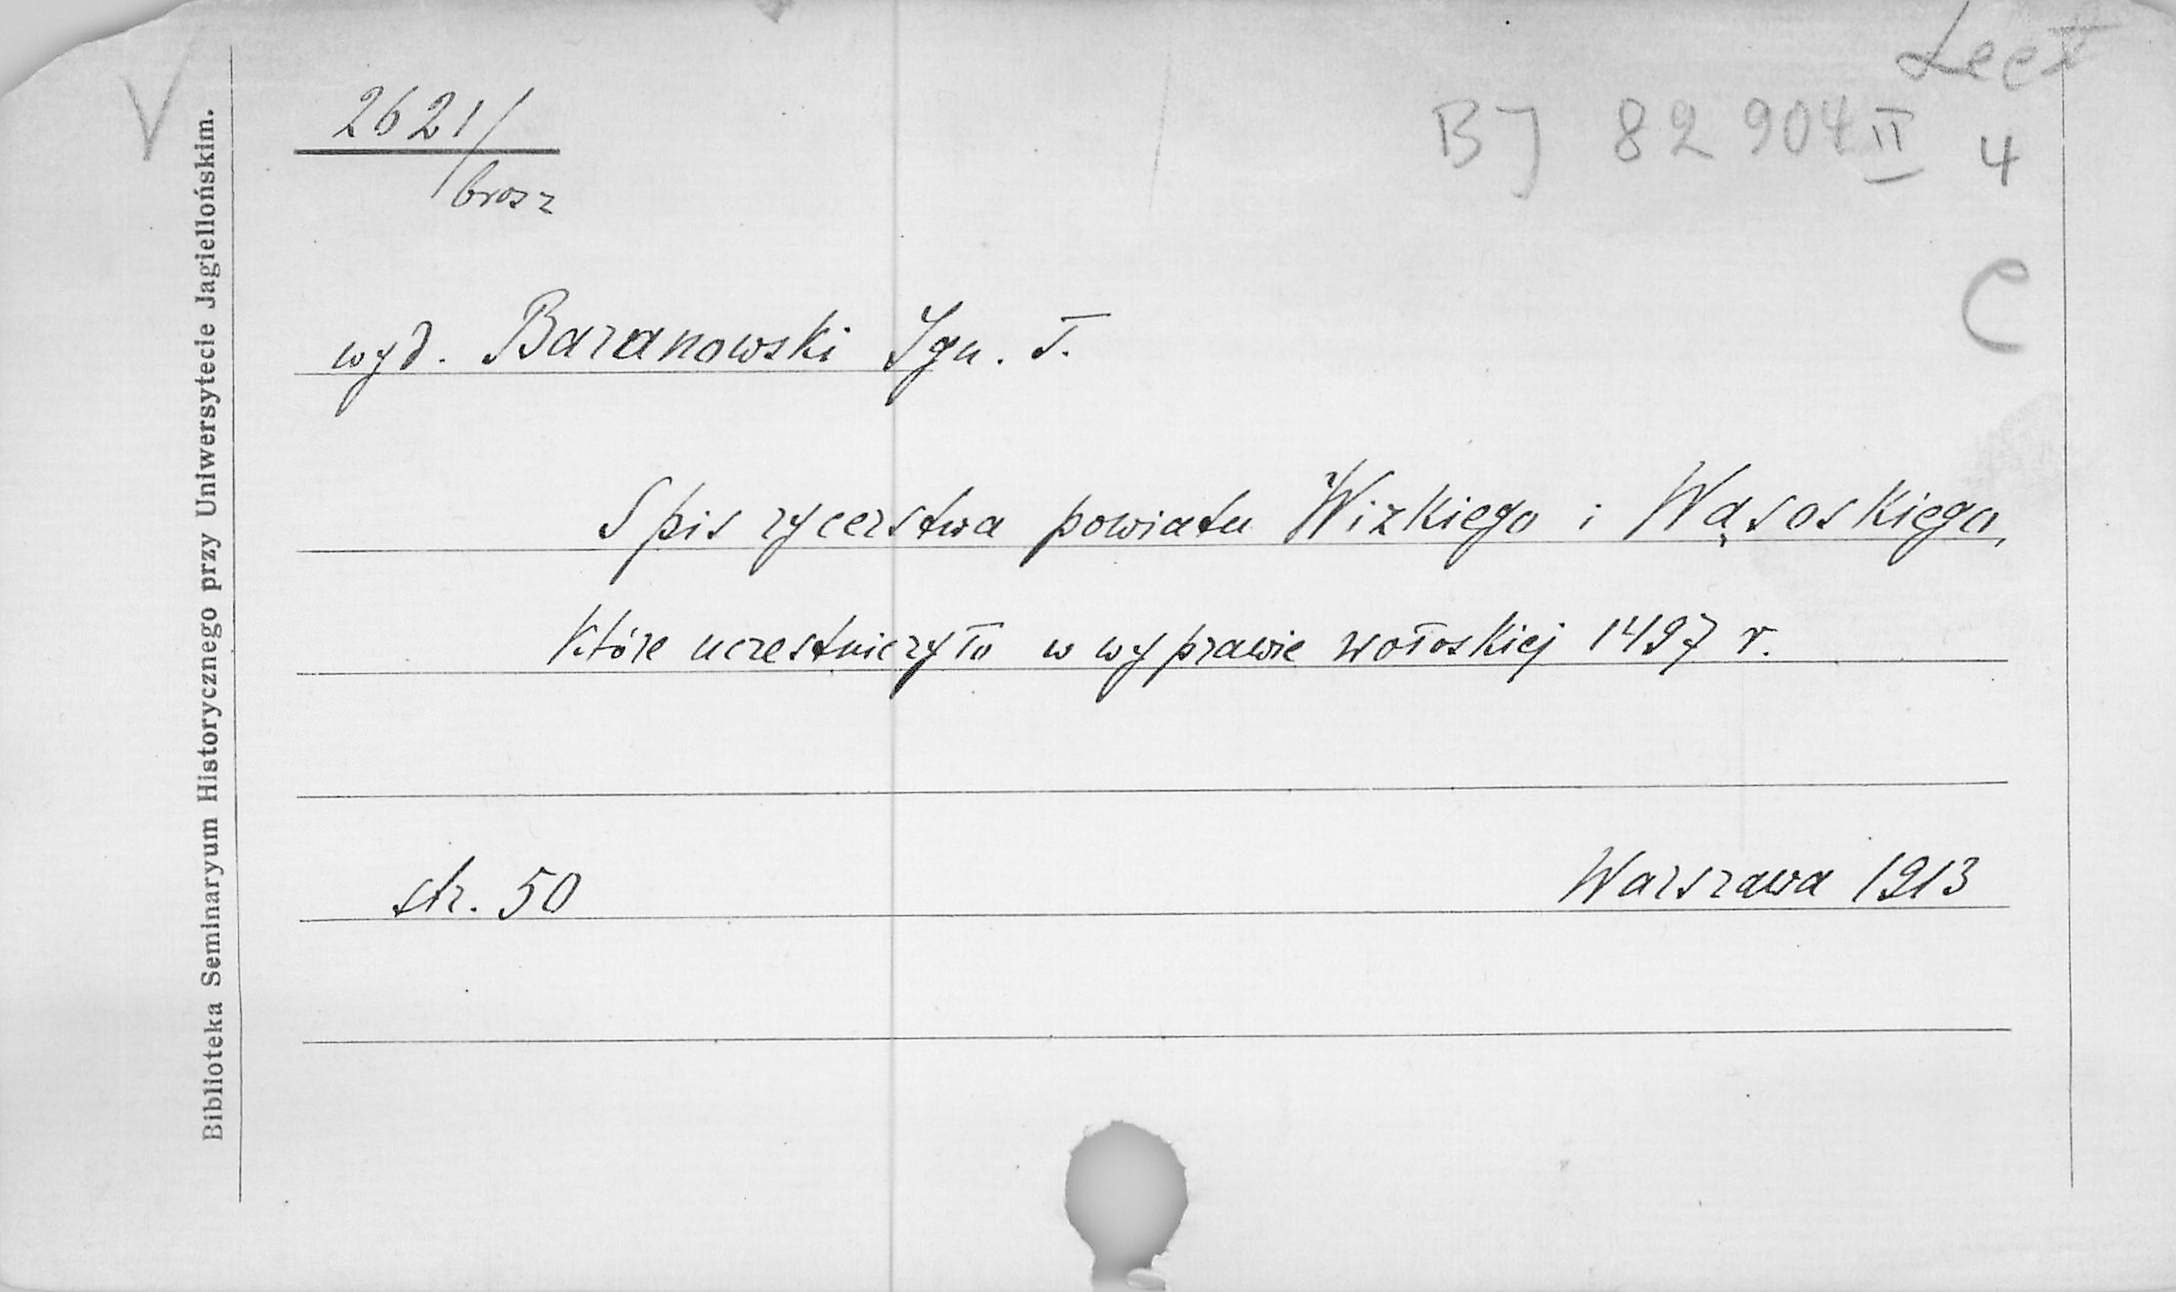 V
Lect
2621/
brosz
BJ 82 904 II 4
C
wyd. Baranowski Ign. T.
Spis rycerstwa powiatu Wizkiego i Wąsoskiego,
które uczestniczyło w wyprawie wołoskiej 1497 r.
str. 50
Warszawa 1913
Biblioteka Seminaryum Historycznego przy Uniwersytecie Jagiellońskim.